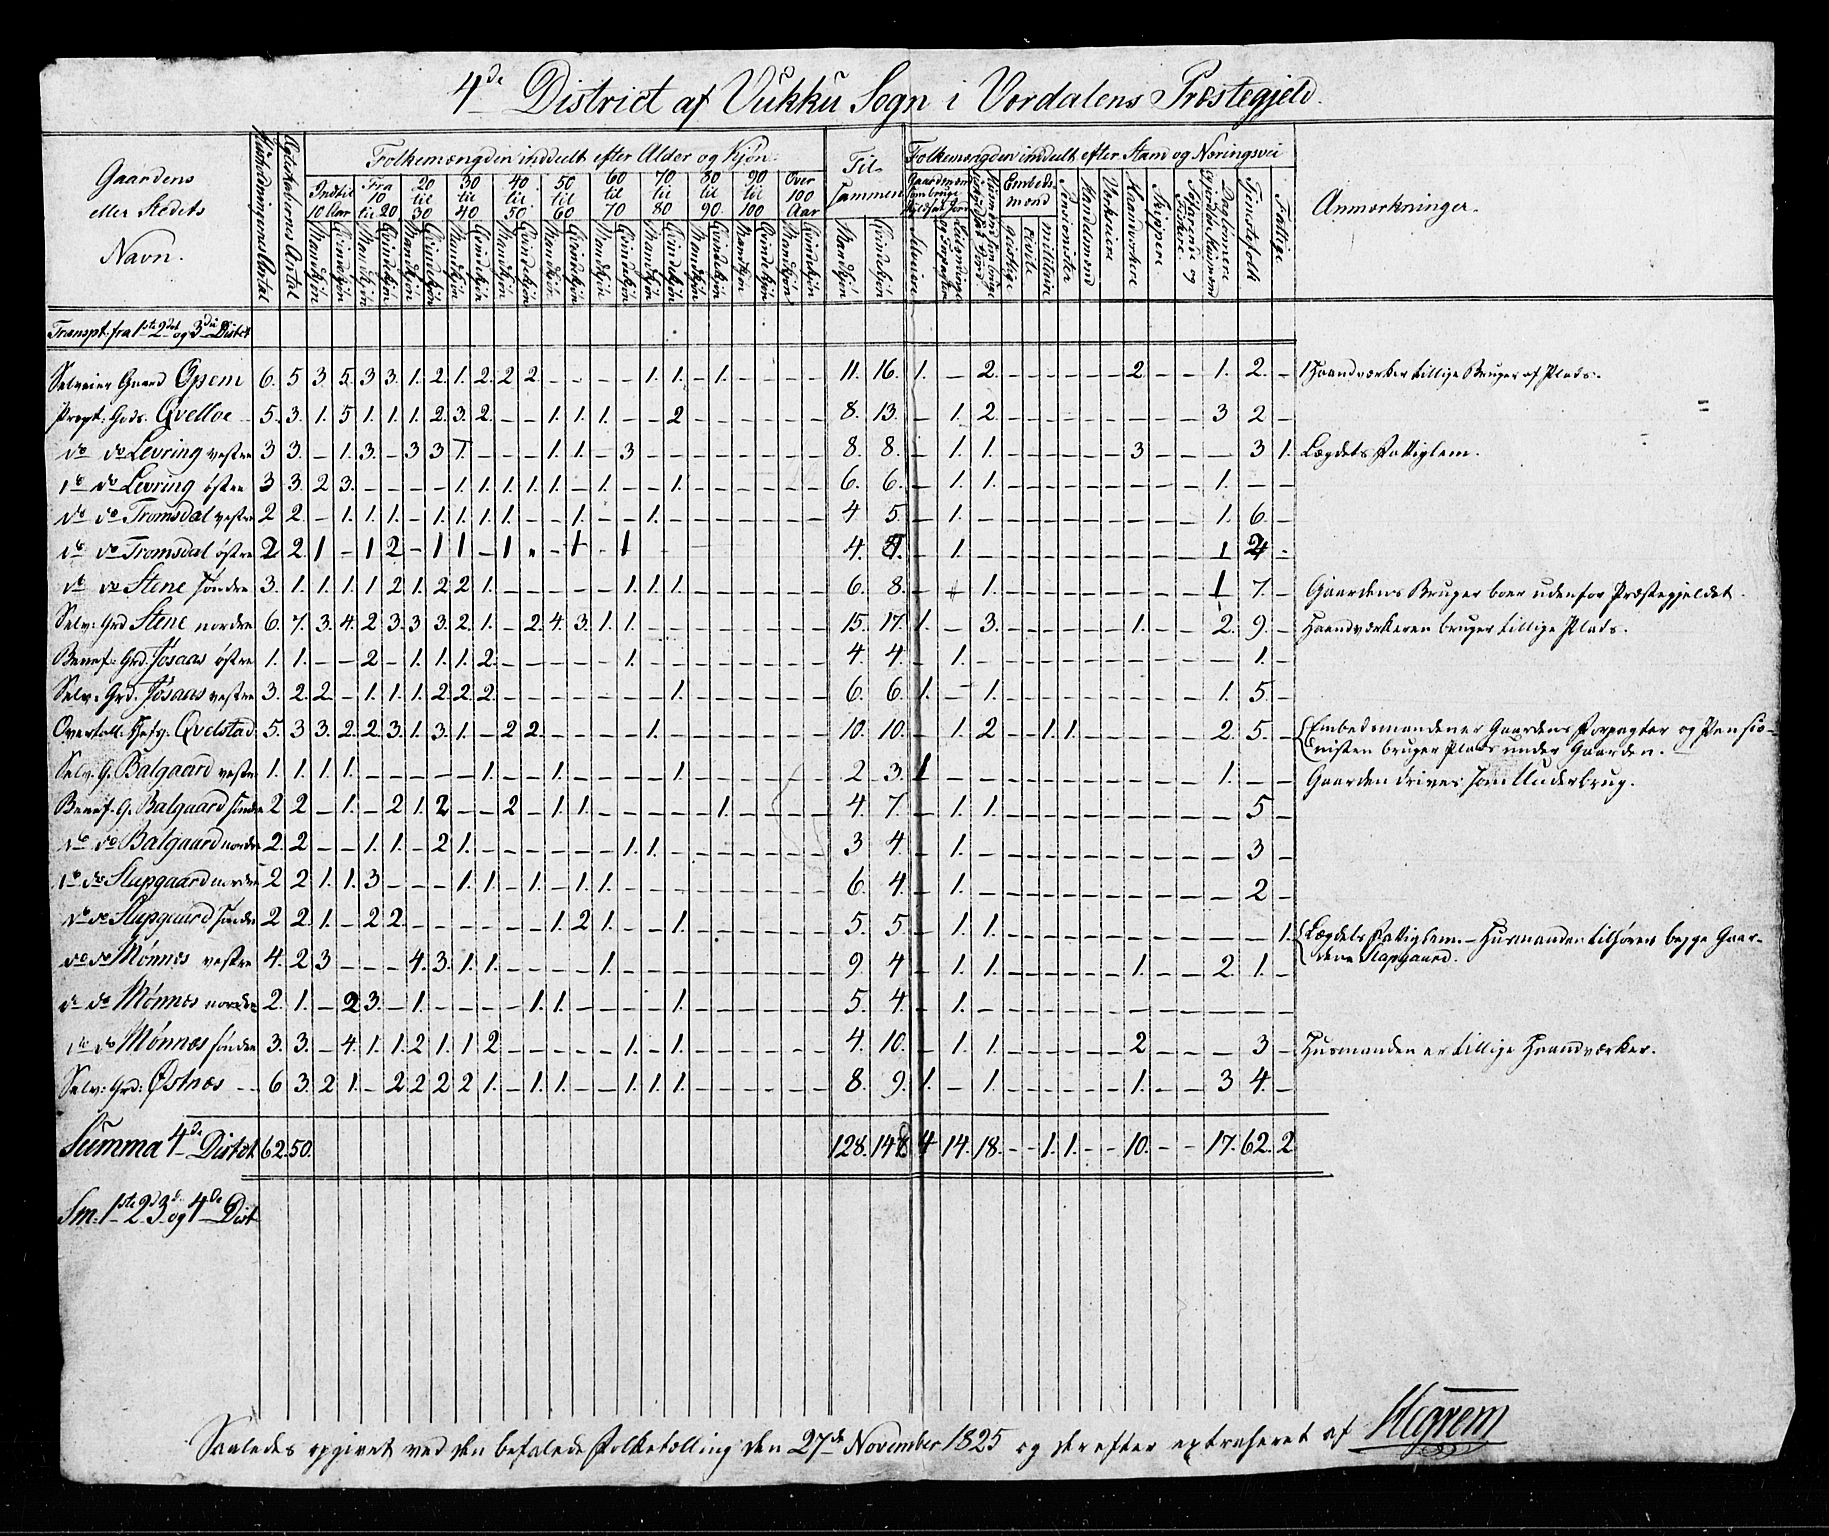 4de District af Vukku Sogn i Vordalens Præstegjeld.
Gaardens eller Stedets Navn. | Huusholdningernes Antal | Ægteskabernes Antal | Folkemængden inddeelt efter Alder og Kjøn. | Til-sammen | Folkemængden inddeelt efter Stand og Næringsvei | Anmærkninger.
Indtil 10 Aar | Fra 10 til 20 | 20 til 30 | 30 til 40 | 40 til 50 | 50 til 60 | 60 til 70 | 70 til 80 | 80 til 90 | 90 til 100 | Over 100 Aar | Embeds-mænd
Mandkjøn | Qvindekjøn | Selveiere | geistlige | civile | militaire | Pensionister | Handelsmænd | Voksne | Haandværkere | Skippere | Tjenestefolk | Fattige
Transpt. fra 1ste 2det og 3die Distct
Selveier Gaard Opem 6. 5 3. 5. 3 3. 1. 2. 1. 2. 2 2. - - - - 1. 1. - 1. - - - - 11. 16. 1. - 2. - - - - - - 2. - - 1. 2. - Haandværker tillige Bruger af Plads.
Propt: Gods. Qvelloe 5. 3. 1. 5. 1. 1. 1. 2. 3. 2. - - 1. 1. 1. - - 2 - - - - - - 8. 13. - 1. 2. - - - - - - - - - 3 2. -
do do Levring vestre 3 3. - 1. 3. - 3 3 1. - - - 1. 1. - 3 - - - - - - 8. 8. - 1. 1. - - - - - - 3. - - - 3 1. Lægdets Fattiglem.
do do Levring østre 3 3. 2 3. - - - - 1. 1. 1. 1. 1. - 1. - - 1. - - - - - - 6. 6. - 1. 1. - - - - - - - - - 1. - -
do do Tromsdal vestre 2 2. - 1. 1. 1. - 1. 1. 1. 1. - - 1. - - 1. - - - - - - - 4 5. - 1. - - - - - - - - - - 1. 6. -
do do Tromsdal østre 2 2. 1 - 1 2 - 1 1 - 1 - - 1 - 1 - - 4. - 1. - - - - - - - - - - 1 -
do do Stene søndre 3. 1. 1. 1. 1 2 1. 2 2 1. - - - - - 1. 1. 1. - - - - - - 6. 8. - 1. - - - - - - - - - 1 7. - Gaardens Bruger boer udenfor Præstegjeldet.
Selv: Grd Stene nordre 6. 7. 3. 4. 2 3. 3 3. 2. 1. - 2. 4. 3. 1. 1. - - - - - - - - 15. 17. 1. - 3. - - - - - - 1. - - 2. 9. - Haandværkeren bruger tillige Plads.
Benef: Grd. Jøsaas østre 1. 1. - - 2 - 1. 1. 1. 2. - - - - - 1. - - - - - - - - 4. 4. - 1. - - - - - - - - - - - 1. -
Selv: Grd. Jøsaas vestre 3. 2. 2. - 1. 1. 1. 2 2. 2. - - - - - - - 1. - - - - - - 6. 6. 1. - 1. - - - - - - - - - 1. 5. -
Qvelstad 5. 3 3. 2. 2. 3. 1. 3. 1. - 2 2. - - - - 1. - - - - - - - 10. 10. - 1. 2 - - 1. 1. - - - - - 2. 5. - Embedsmanden er Gaardens Forpagter og Pensio-
nisten bruger Plads under Gaarden.
Selv: G. Balgaard vestre 1. 1. 1. 1. - - - - - 1. - - 1. - - - - 1. - - - - - - 2 3. 1 - - - - - - - - - - - 1. - - Gaarden drives som Underbrug.
Benef: G. Balgaard søndre 2 2. - 1. - 2 1. 2 - - 2 - 1. 1. - - - - - 1. - - - - 4. 7. - 1. 1. - - - - - - - - - - 5 -
do do Balgaard nordre 2. 2. - - 1. 1. - 2. 1. - - - - - - 1. 1. - - - - - - - 3 4. - 1. - - - - - - - - - - - 3 -
do do Slapgaard nordre 2 2 1. 1. 3 - - - 1. 1. - 1. - 1. 1. - - - - - - - - - 6. 4. - 1. - - - - - - - - - - - 2 -
do do Slapgaard søndre 2 2 1. - 2 2. - - - - - - 1. 2 1. - - 1. - - - - - - 5. 5. - 1. 1. - - - - - - - - - - - 1. Lægdets Fattiglem. - Husmanden tilhører begge Gaar-
dene Slapgaard.
do do Mønnes vestre 4. 2 3 - - - 4. 3. 1. 1. - - - - 1. - - - - - - - - - 9 4. - 1. 1. - - - - - - 1. - - 2 1. -
do do Mønnes nordre 2. 1. - 2 3. - 1. - - - - 1. 1. - - - - 1. - - - - - - 5. 4. - 1. - - - - - - - - - - - - -
do do Mønnes søndre 3. 3. - 4. 1. 1. 2 1. 1. 2 - - - - - 1. - 1. - - - - - - 4. 10. - 1. 1. - - - - - - 2 - - - 3 - Husmanden er tillige Haandværker.
Selv: Grd: Østnæs 6 3. 2 1. - 2 2 2 2 1. - 1. 1. - - 1. 1. 1. - - - - - - 8. 9. 1. - 1. - - - - - - 1. - - 3 4. -
Summa 4de Distct 62. 50. 128. 148 4 14. 18. - - 1. 1. - - 10. - - 17. 62. 2
Sm: 1ste 2d 3d og 4de Dist
Saaledes opgivet ved den befalede Folketælling den 27de November 1825 og derefter extraheret af Hegrem